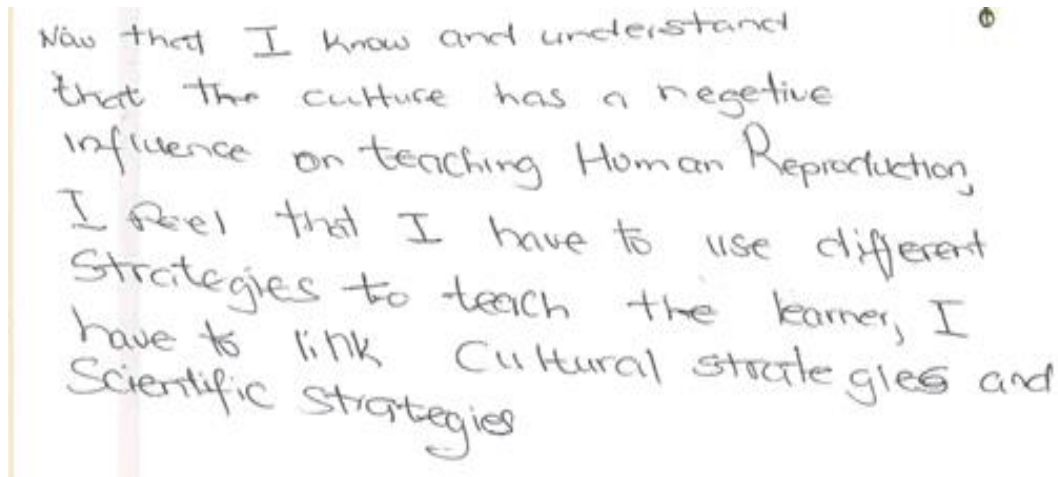 Now that I know and understand
that the culture has a negetive
influence on teaching Human Reproduction,
I feel that I have to use different
Strategies to teach the learner, I
have to link Cultural strategies and
Scientific strategies